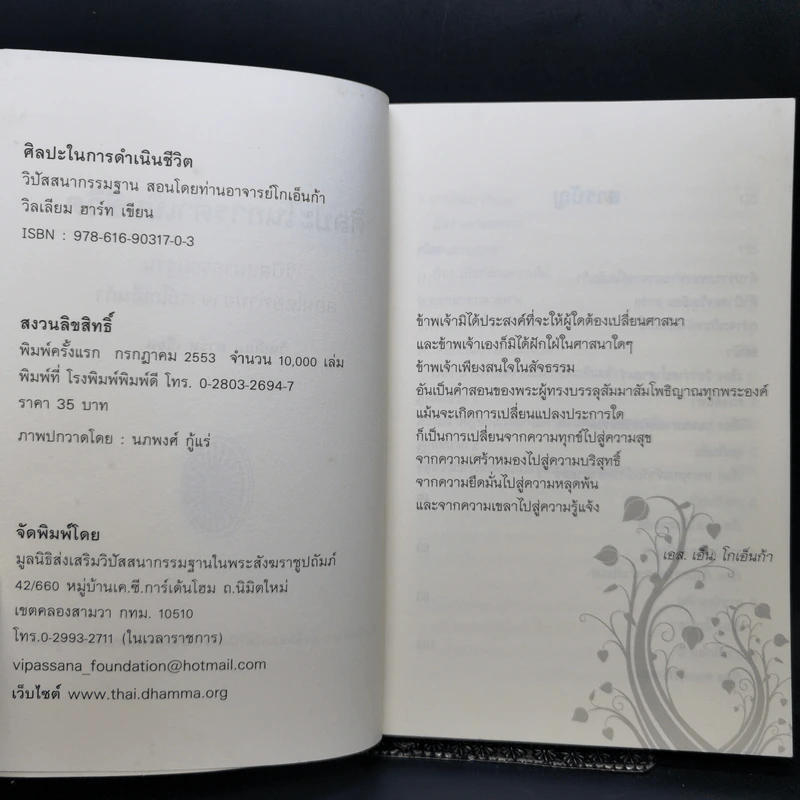 ศิลปะในการดำเนินชีวิต
วิปัสสนากรรมฐาน สอนโดยท่านอาจารย์โกเอ็นก้า
วิลเลียม ฮาร์ท เขียน
ISBN : 978-616-90317-0-3
สงวนลิขสิทธิ์
พิมพ์ครั้งแรก กรกฎาคม 2553 จำนวน 10,000 เล่ม
พิมพ์ที่ โรงพิมพ์พิมพ์ดี โทร. 0-2803-2694-7
ราคา 35 บาท
ภาพปกวาดโดย : นภพงศ์ กู้แร่
จัดพิมพ์โดย
มูลนิธิส่งเสริมวิปัสสนากรรมฐานในพระสังฆราชูปถัมภ์
42/660 หมู่บ้านเค.ซี.การ์เด้นโฮม ถ.นิมิตใหม่
เขตคลองสามวา กทม. 10510
โทร.0-2993-2711 (ในเวลาราชการ)
vipassana_foundation@hotmail.com
เว็บไซต์ www.thai.dhamma.org
ข้าพเจ้ามิได้ประสงค์ที่จะให้ผู้ใดต้องเปลี่ยนศาสนา
และข้าพเจ้าเองก็มิได้ฝักใฝ่ในศาสนาใดๆ
ข้าพเจ้าเพียงสนใจในสัจธรรม
อันเป็นคำสอนของพระผู้ทรงบรรลุสัมมาสัมโพธิญาณทุกพระองค์
แม้นจะเกิดการเปลี่ยนแปลงประการใด
ก็เป็นการเปลี่ยนจากความทุกข์ไปสู่ความสุข
จากความเศร้าหมองไปสู่ความบริสุทธิ์
จากความยึดมั่นไปสู่ความหลุดพ้น
และจากความเขลาไปสู่ความรู้แจ้ง
เอส. เอ็น. โกเอ็นก้า